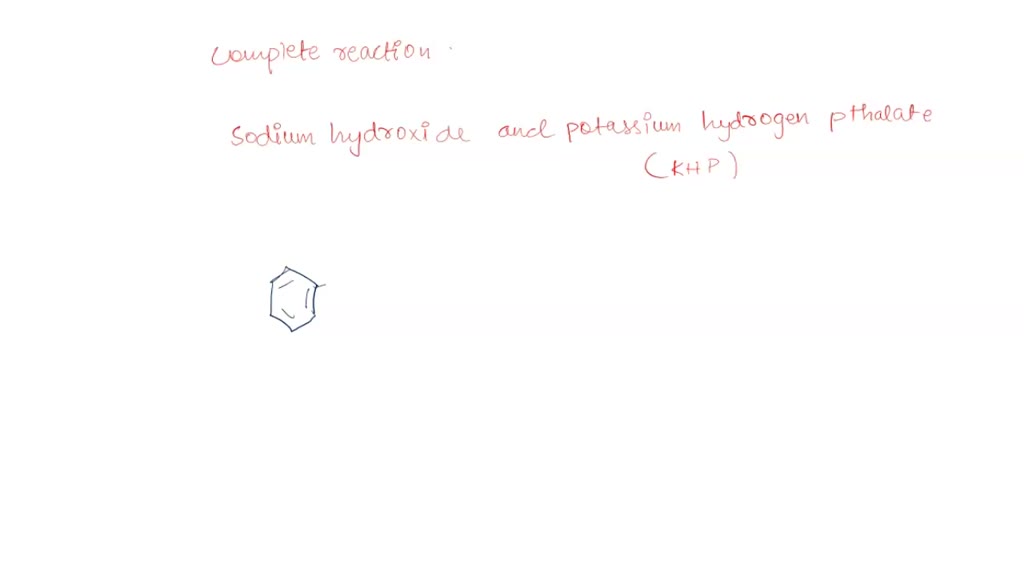 Complete reaction.
Sodium hydroxide and potassium hydrogen pthalate
(KHP)